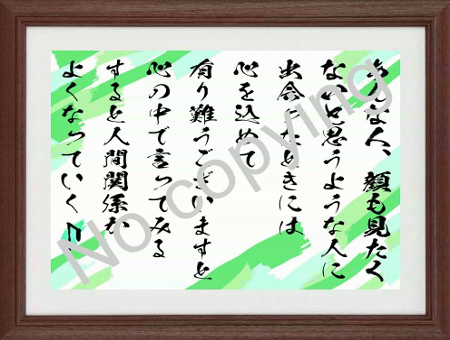 あんな人、顔も見たく
ないと思うような人に
出会ったときには
心を込めて
有り難うございますと
心の中で言ってみる
すると人間関係が
よくなっていく
No copying